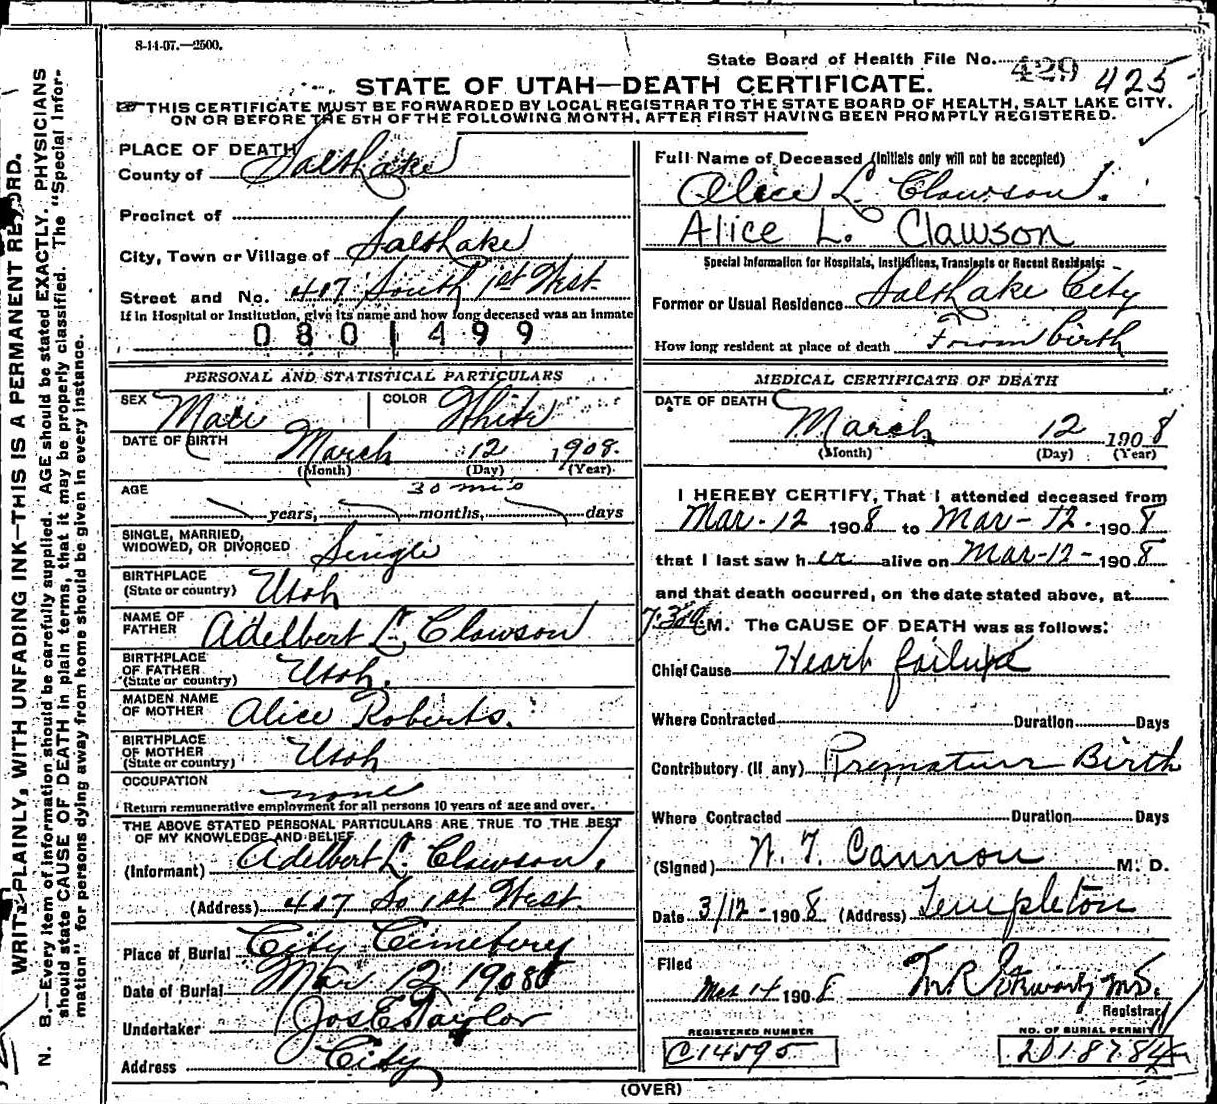 8-14-07.—2500.
State Board of Health File No. 429 425
STATE OF UTAH—DEATH CERTIFICATE.
THIS CERTIFICATE MUST BE FORWARDED BY LOCAL REGISTRAR TO THE STATE BOARD OF HEALTH, SALT LAKE CITY.
ON OR BEFORE THE 5TH OF THE FOLLOWING MONTH, AFTER FIRST HAVING BEEN PROMPTLY REGISTERED.
PLACE OF DEATH
County of Salt Lake
Precinct of
City, Town or Village of Salt Lake
Street and No. 417 South 1st West
If in Hospital or Institution, give its name and how long deceased was an inmate
0801499
PERSONAL AND STATISTICAL PARTICULARS
SEX COLOR White
DATE OF BIRTH March 12 1908.
(Month) (Day) (Year)
AGE 30 mins
years, months, days
SINGLE, MARRIED,
WIDOWED, OR DIVORCED Single
BIRTHPLACE
(State or country) Utah
NAME OF
FATHER Adelbert L. Clawson
BIRTHPLACE
OF FATHER
(State or country) Utah.
MAIDEN NAME
OF MOTHER Alice Roberts.
BIRTHPLACE
OF MOTHER
(State or country) Utah
OCCUPATION none
Return remunerative employment for all persons 10 years of age and over.
THE ABOVE STATED PERSONAL PARTICULARS ARE TRUE TO THE BEST
OF MY KNOWLEDGE AND BELIEF
(Informant) Adelbert L. Clawson.
(Address) 417 So 1st West.
Place of Burial City Cemetery
Date of Burial Mar 12 1908
Undertaker Jos E Taylor
Address City
Full Name of Deceased (Initials only will not be accepted)
Alice L. Clawson.
Alice L. Clawson
Special Information for Hospitals, Institutions, Transients or Recent Residents:
Former or Usual Residence Salt Lake City
How long resident at place of death From birth
MEDICAL CERTIFICATE OF DEATH
DATE OF DEATH
March 12 1908
(Month) (Day) (Year)
I HEREBY CERTIFY, That I attended deceased from
Mar. 12 1908 to Mar-12. 1908
that I last saw her alive on Mar-12-1908
and that death occurred, on the date stated above, at
7:30 a M. The CAUSE OF DEATH was as follows:
Chief Cause Heart failure
Where Contracted Duration Days
Contributory (If any) Premature Birth
Where Contracted Duration Days
(Signed) W. T. Cannon M. D.
Date 3/12-1908 (Address) Templeton
Filed
Mar 14 1908
Registrar
REGISTERED NUMBER NO. OF BURIAL PERMIT
C14595
(OVER)
WRITE PLAINLY, WITH UNFADING INK—THIS IS A PERMANENT RECORD.
N. B.—Every item of information should be carefully supplied. AGE should be stated EXACTLY. PHYSICIANS
should state CAUSE OF DEATH in plain terms, that it may be properly classified. The "Special Infor-
mation" for persons dying away from home should be given in every instance.